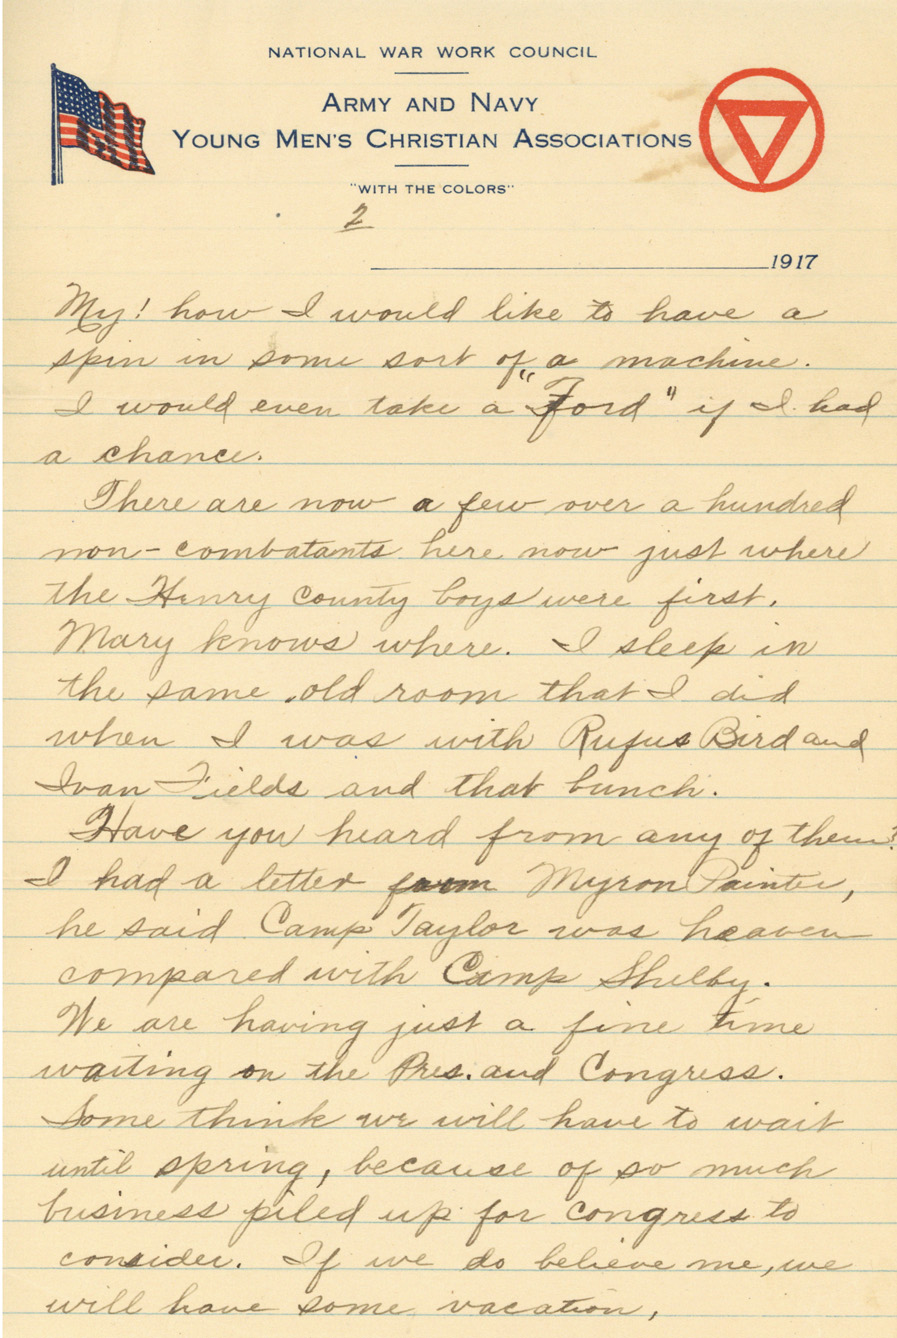 NATIONAL WAR WORK COUNCIL
ARMY AND NAVY
YOUNG MEN'S CHRISTIAN ASSOCIATIONS
"WITH THE COLORS"
2
1917
My! how I would like to have a
spin in some sort of a machine.
I would even take a "Ford" if I had
a chance.
There are now a few over a hundred
non-combatants here now just where
the Henry County boys were first.
Mary knows where. I sleep in
the same old room that I did
when I was with Rufus Bird and
Ivan Fields and that bunch.
Have you heard from any of them?
I had a letter from Myron Painter,
he said Camp Taylor was heaven
compared with Camp Shelby.
We are having just a fine time
waiting on the Pres. and Congress.
Some think we will have to wait
until spring, because of so much
business piled up for congress to
consider. If we do believe me, we
will have some vacation,